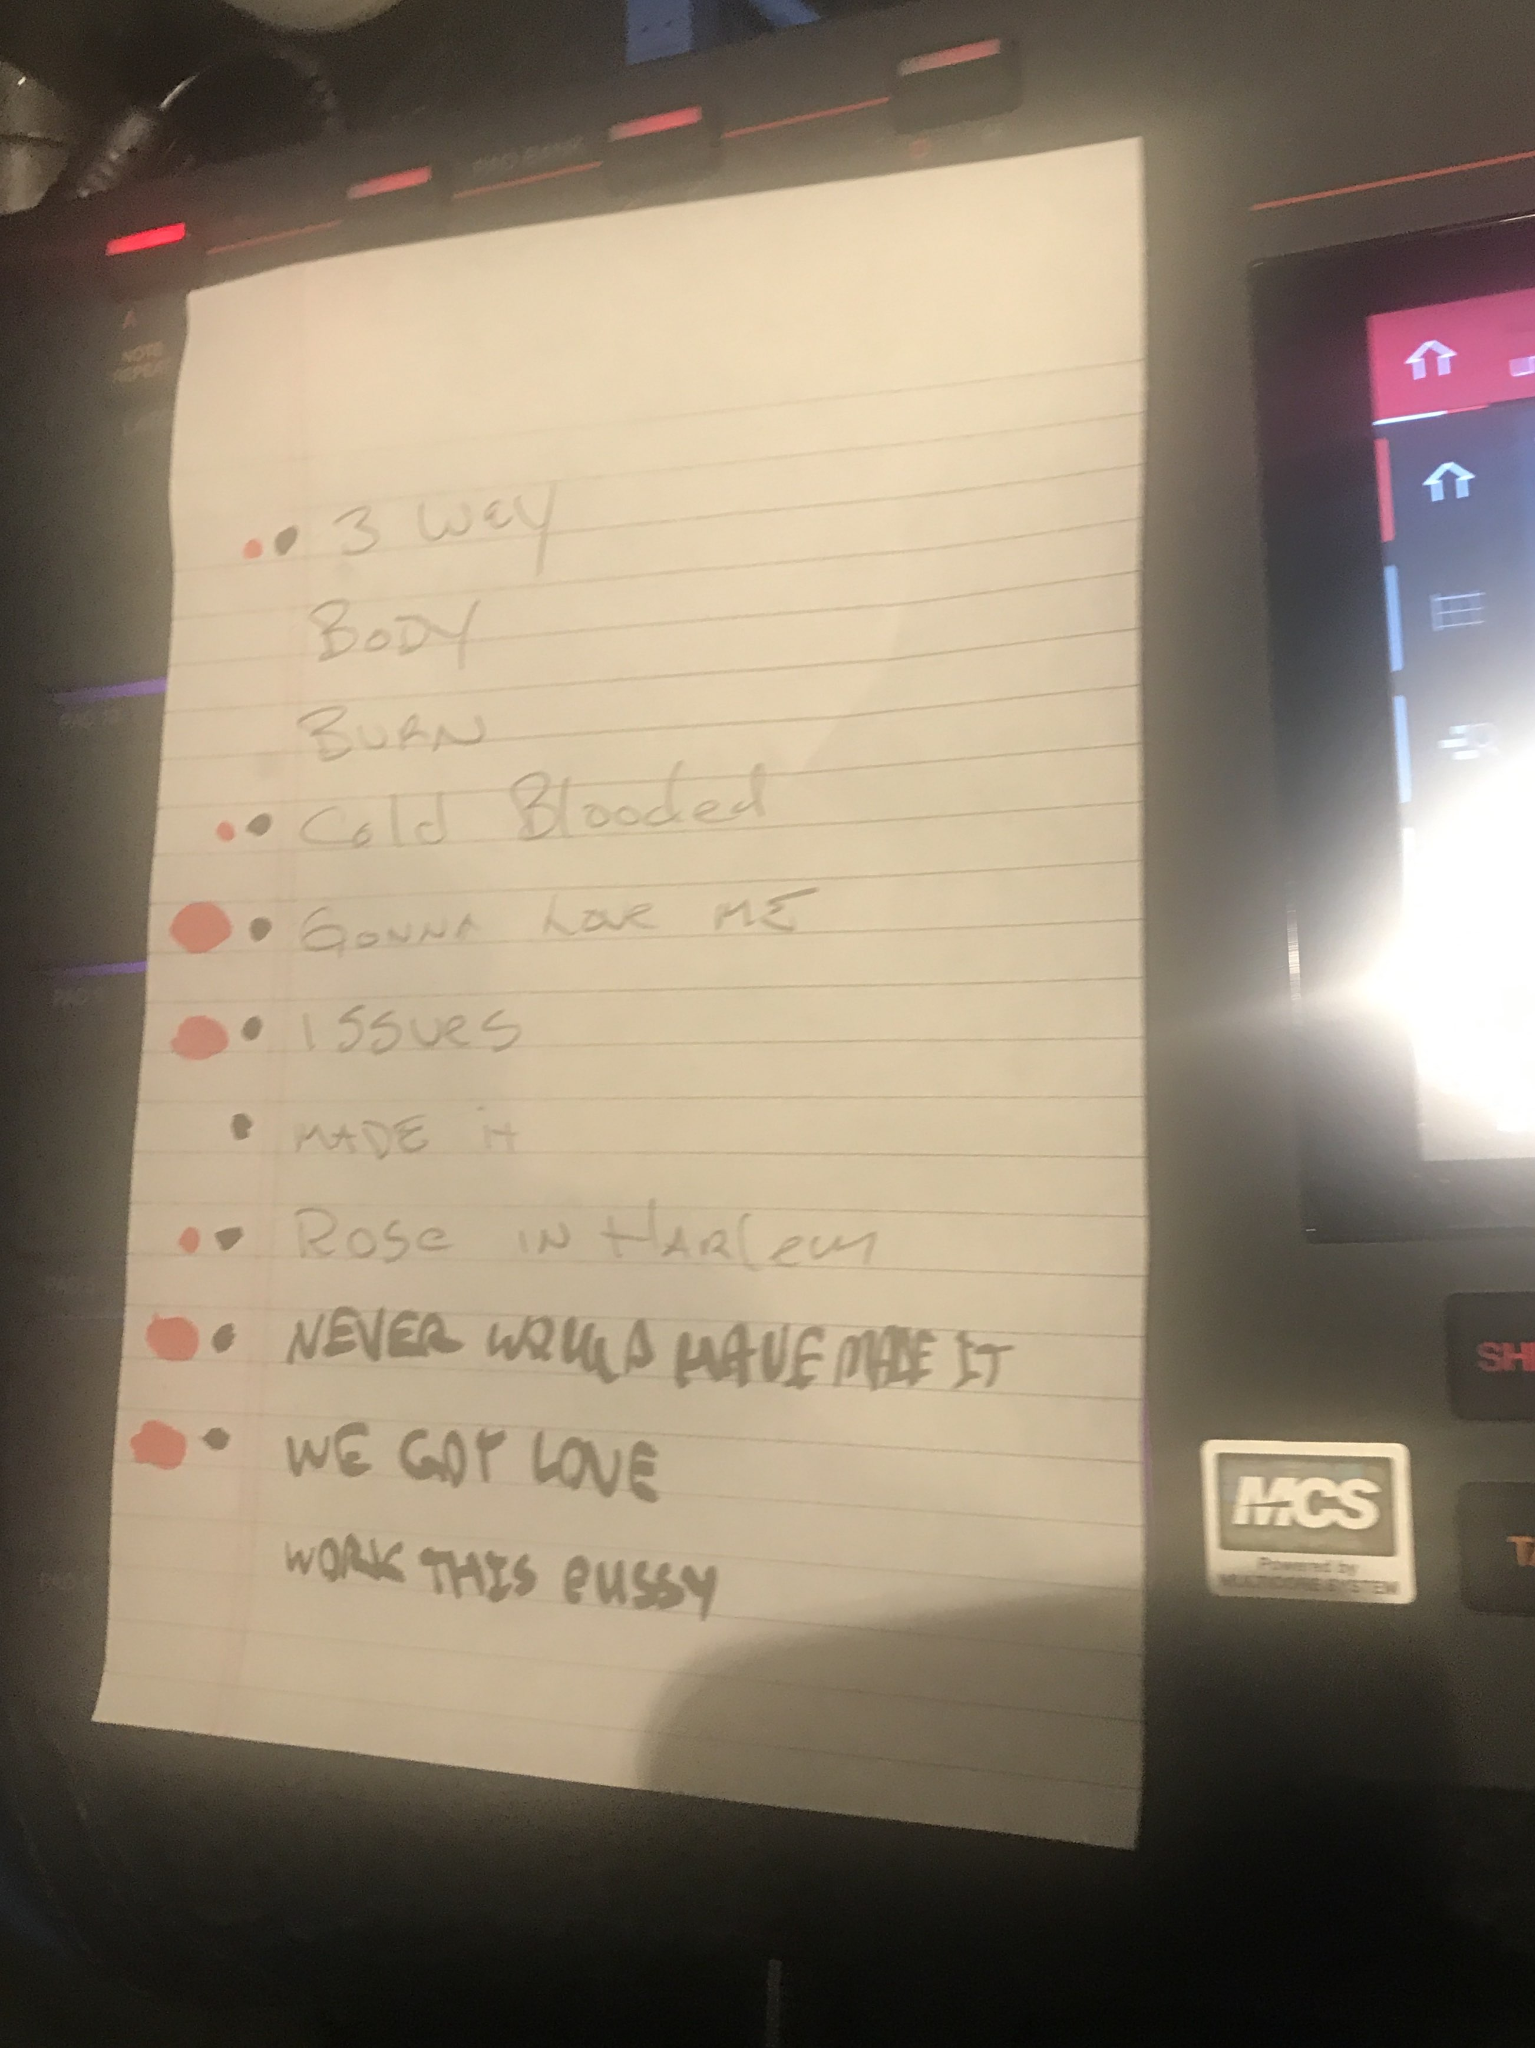 PAD BANK
A
NOTE
REPEAT
3 WAY
BODY
BURN
Cold Blooded
GONNA Love ME
ISSUES
MADE iT
ROSE IN HARlem
NEVER WOULD HAVE MADE IT
WE GOT LOVE
WORK THIS PUSSY
SH
MCS
Powered by
MULTICORE SYSTEM
TA